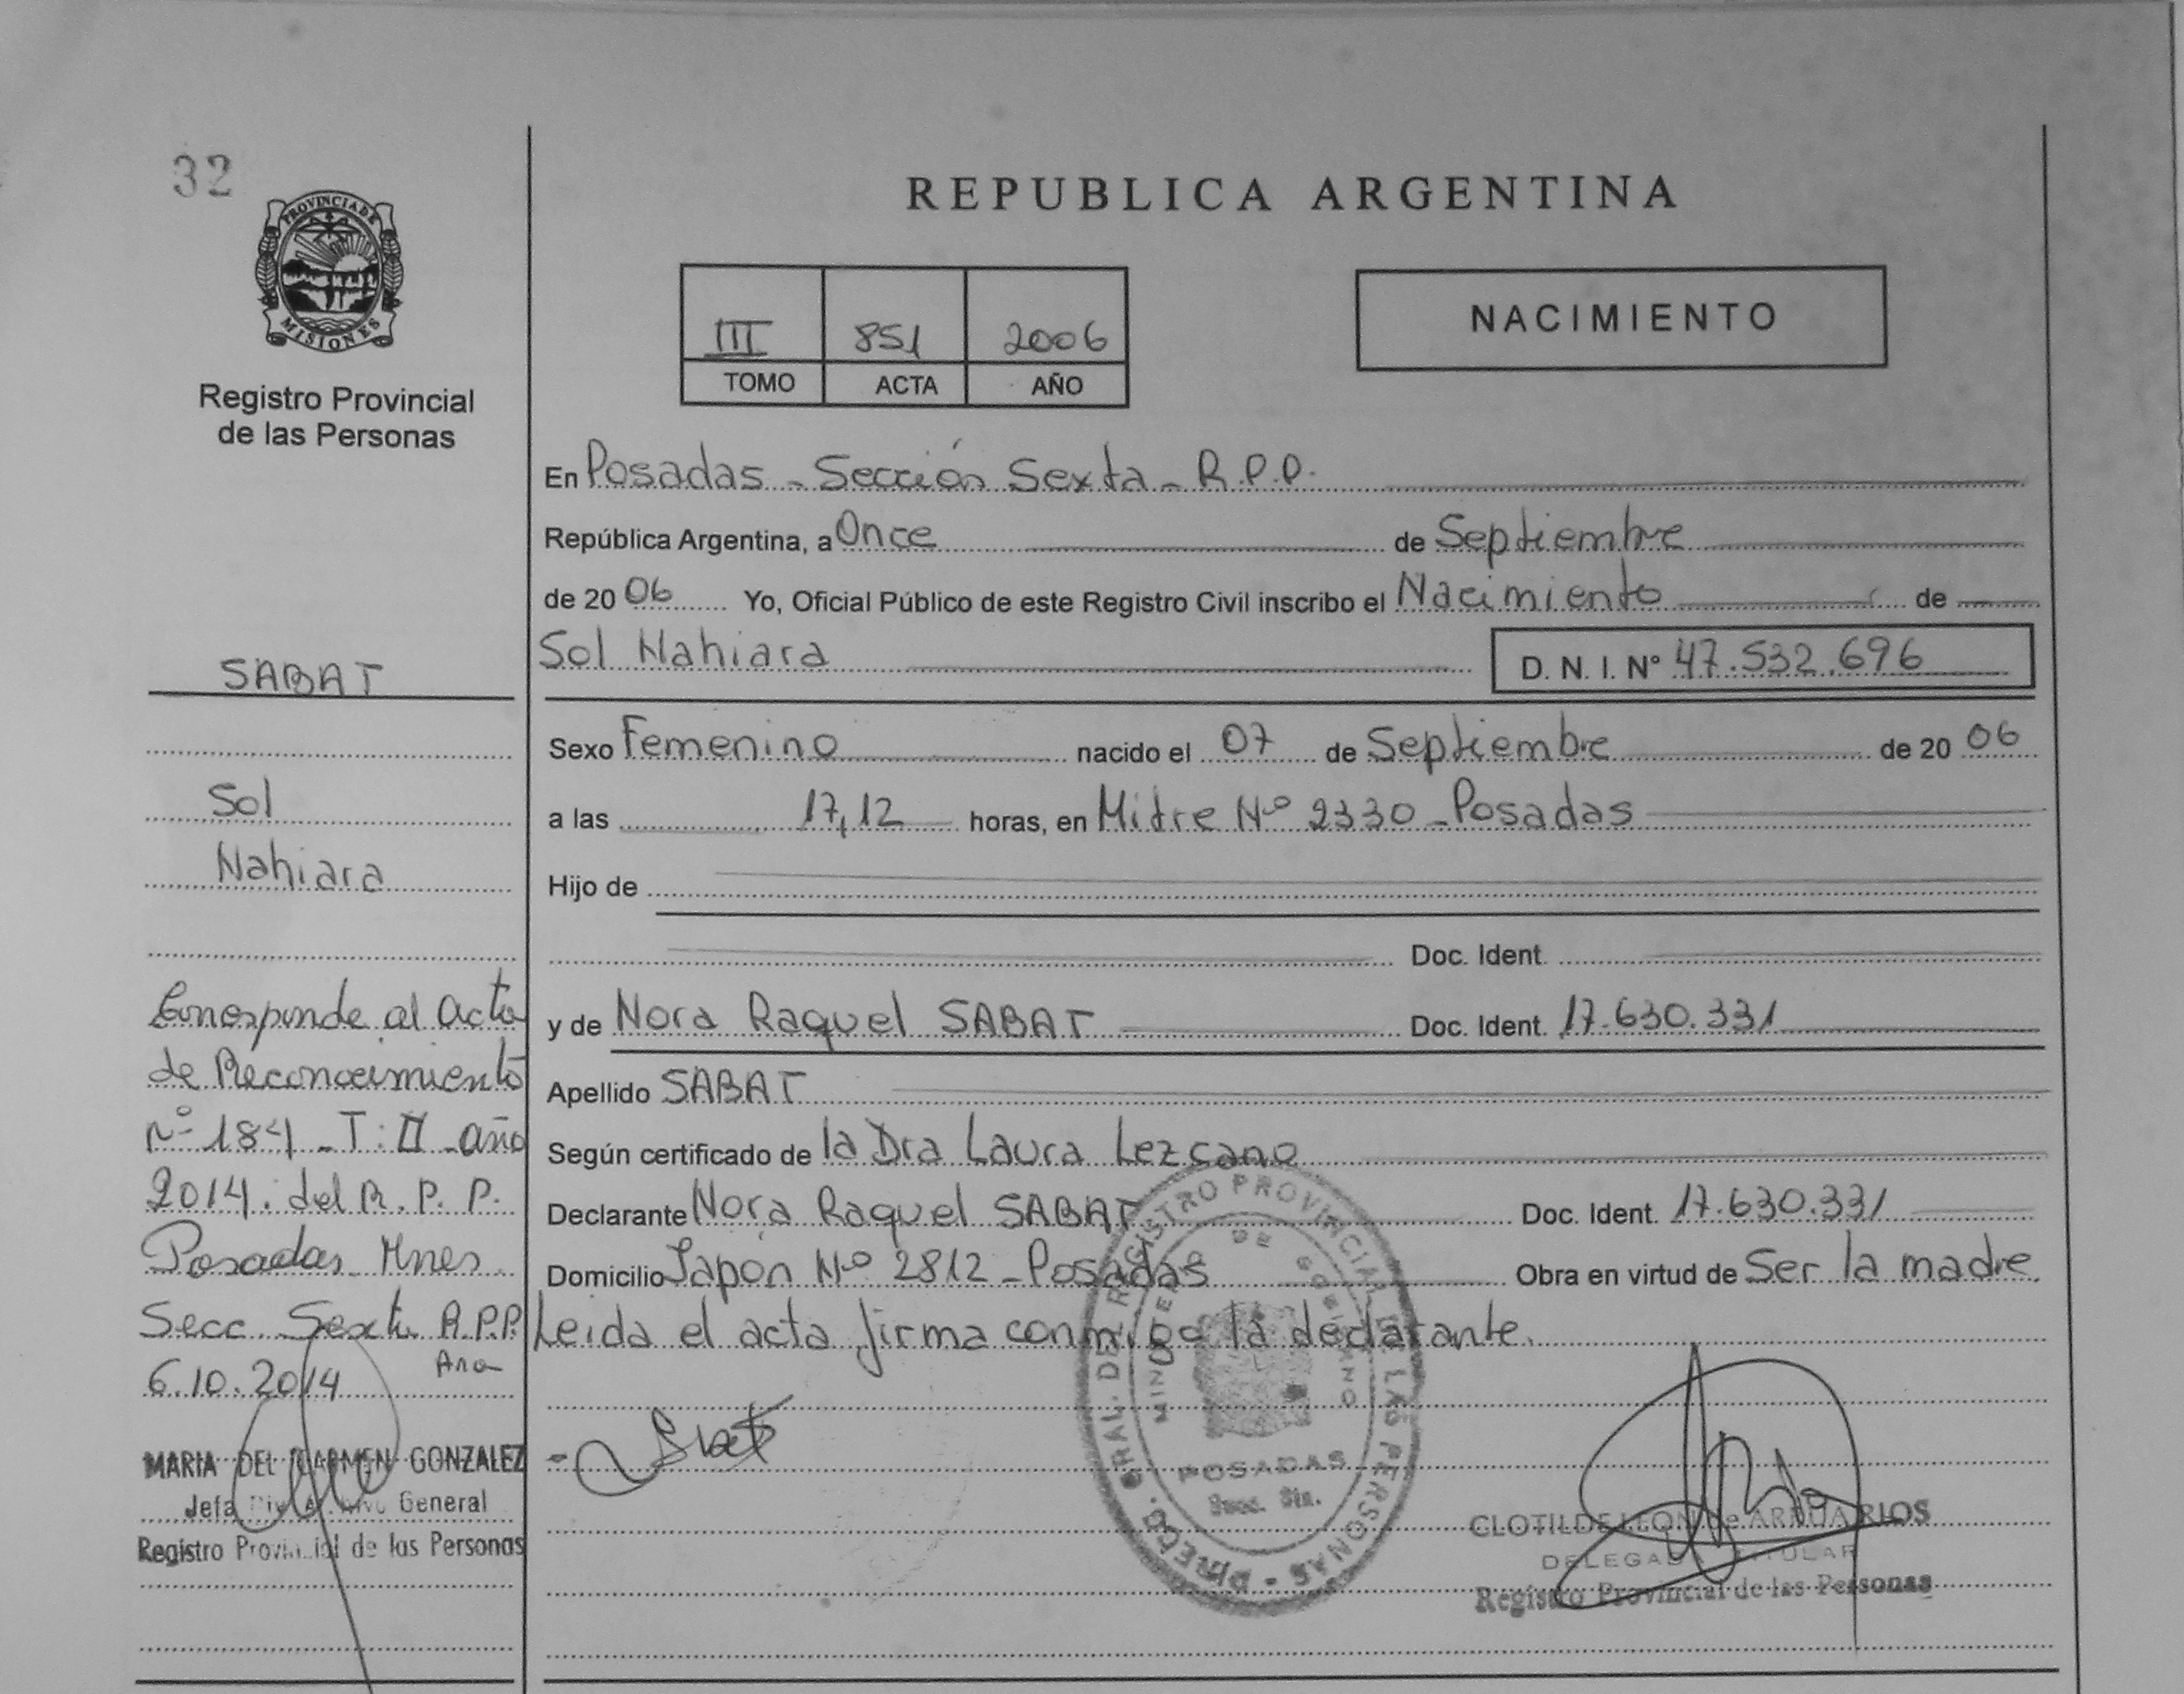 32
PROVINCIA DE
MISIONES
Registro Provincial
de las Personas
REPUBLICA ARGENTINA
III 851 2006
TOMO ACTA AÑO
NACIMIENTO
En Posadas - Sección Sexta - R.P.P.
República Argentina, a Once de Septiembre
de 20 06 Yo, Oficial Público de este Registro Civil inscribo el Nacimiento de
Sol Nahiara D. N. I. N° 47.532.696
Sexo Femenino nacido el 07 de Septiembre de 20 06
a las 17,12 horas, en Mitre Nº 2330 - Posadas
Hijo de
Doc. Ident.
y de Nora Raquel SABAT Doc. Ident. 17.630.331
Apellido SABAT
Según certificado de la Dra Laura Lezcano
Declarante Nora Raquel SABAT Doc. Ident. 17.630.331
Domicilio Japón Nº 2812 - Posadas Obra en virtud de Ser la madre
Leida el acta firma conmigo la declarante.
SABAT
Sol
Nahiara
Corresponde al acta
de Reconocimiento
nº 184 - T: II - año
2014. del R. P. P.
Posadas Mnes
Secc. Sexta R.P.P.
6.10.2014 Ana
MARIA DEL CARMEN GONZALEZ
Jefa General
Registro Provincial de las Personas
GRAL. DEL REGISTRO PROVINCIAL DE LAS PERSONAS - DIRECC.
MINISTERIO DE GOBIERNO
POSADAS
Secc. 6ta.
CLOTILDE LEON de ARRUA RIOS
DELEGADA TITULAR
Registro Provincial de las Personas